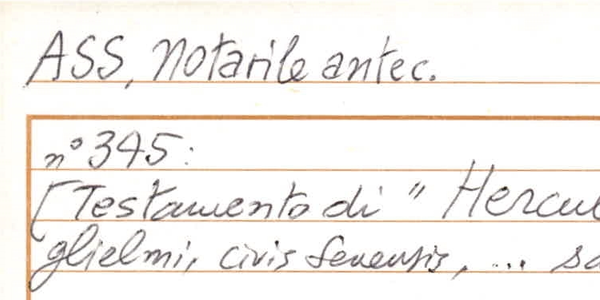 ASS, Notarile antec.
n° 345:
[Testamento di "Hercul
glielmi, civis senensis, ... sa